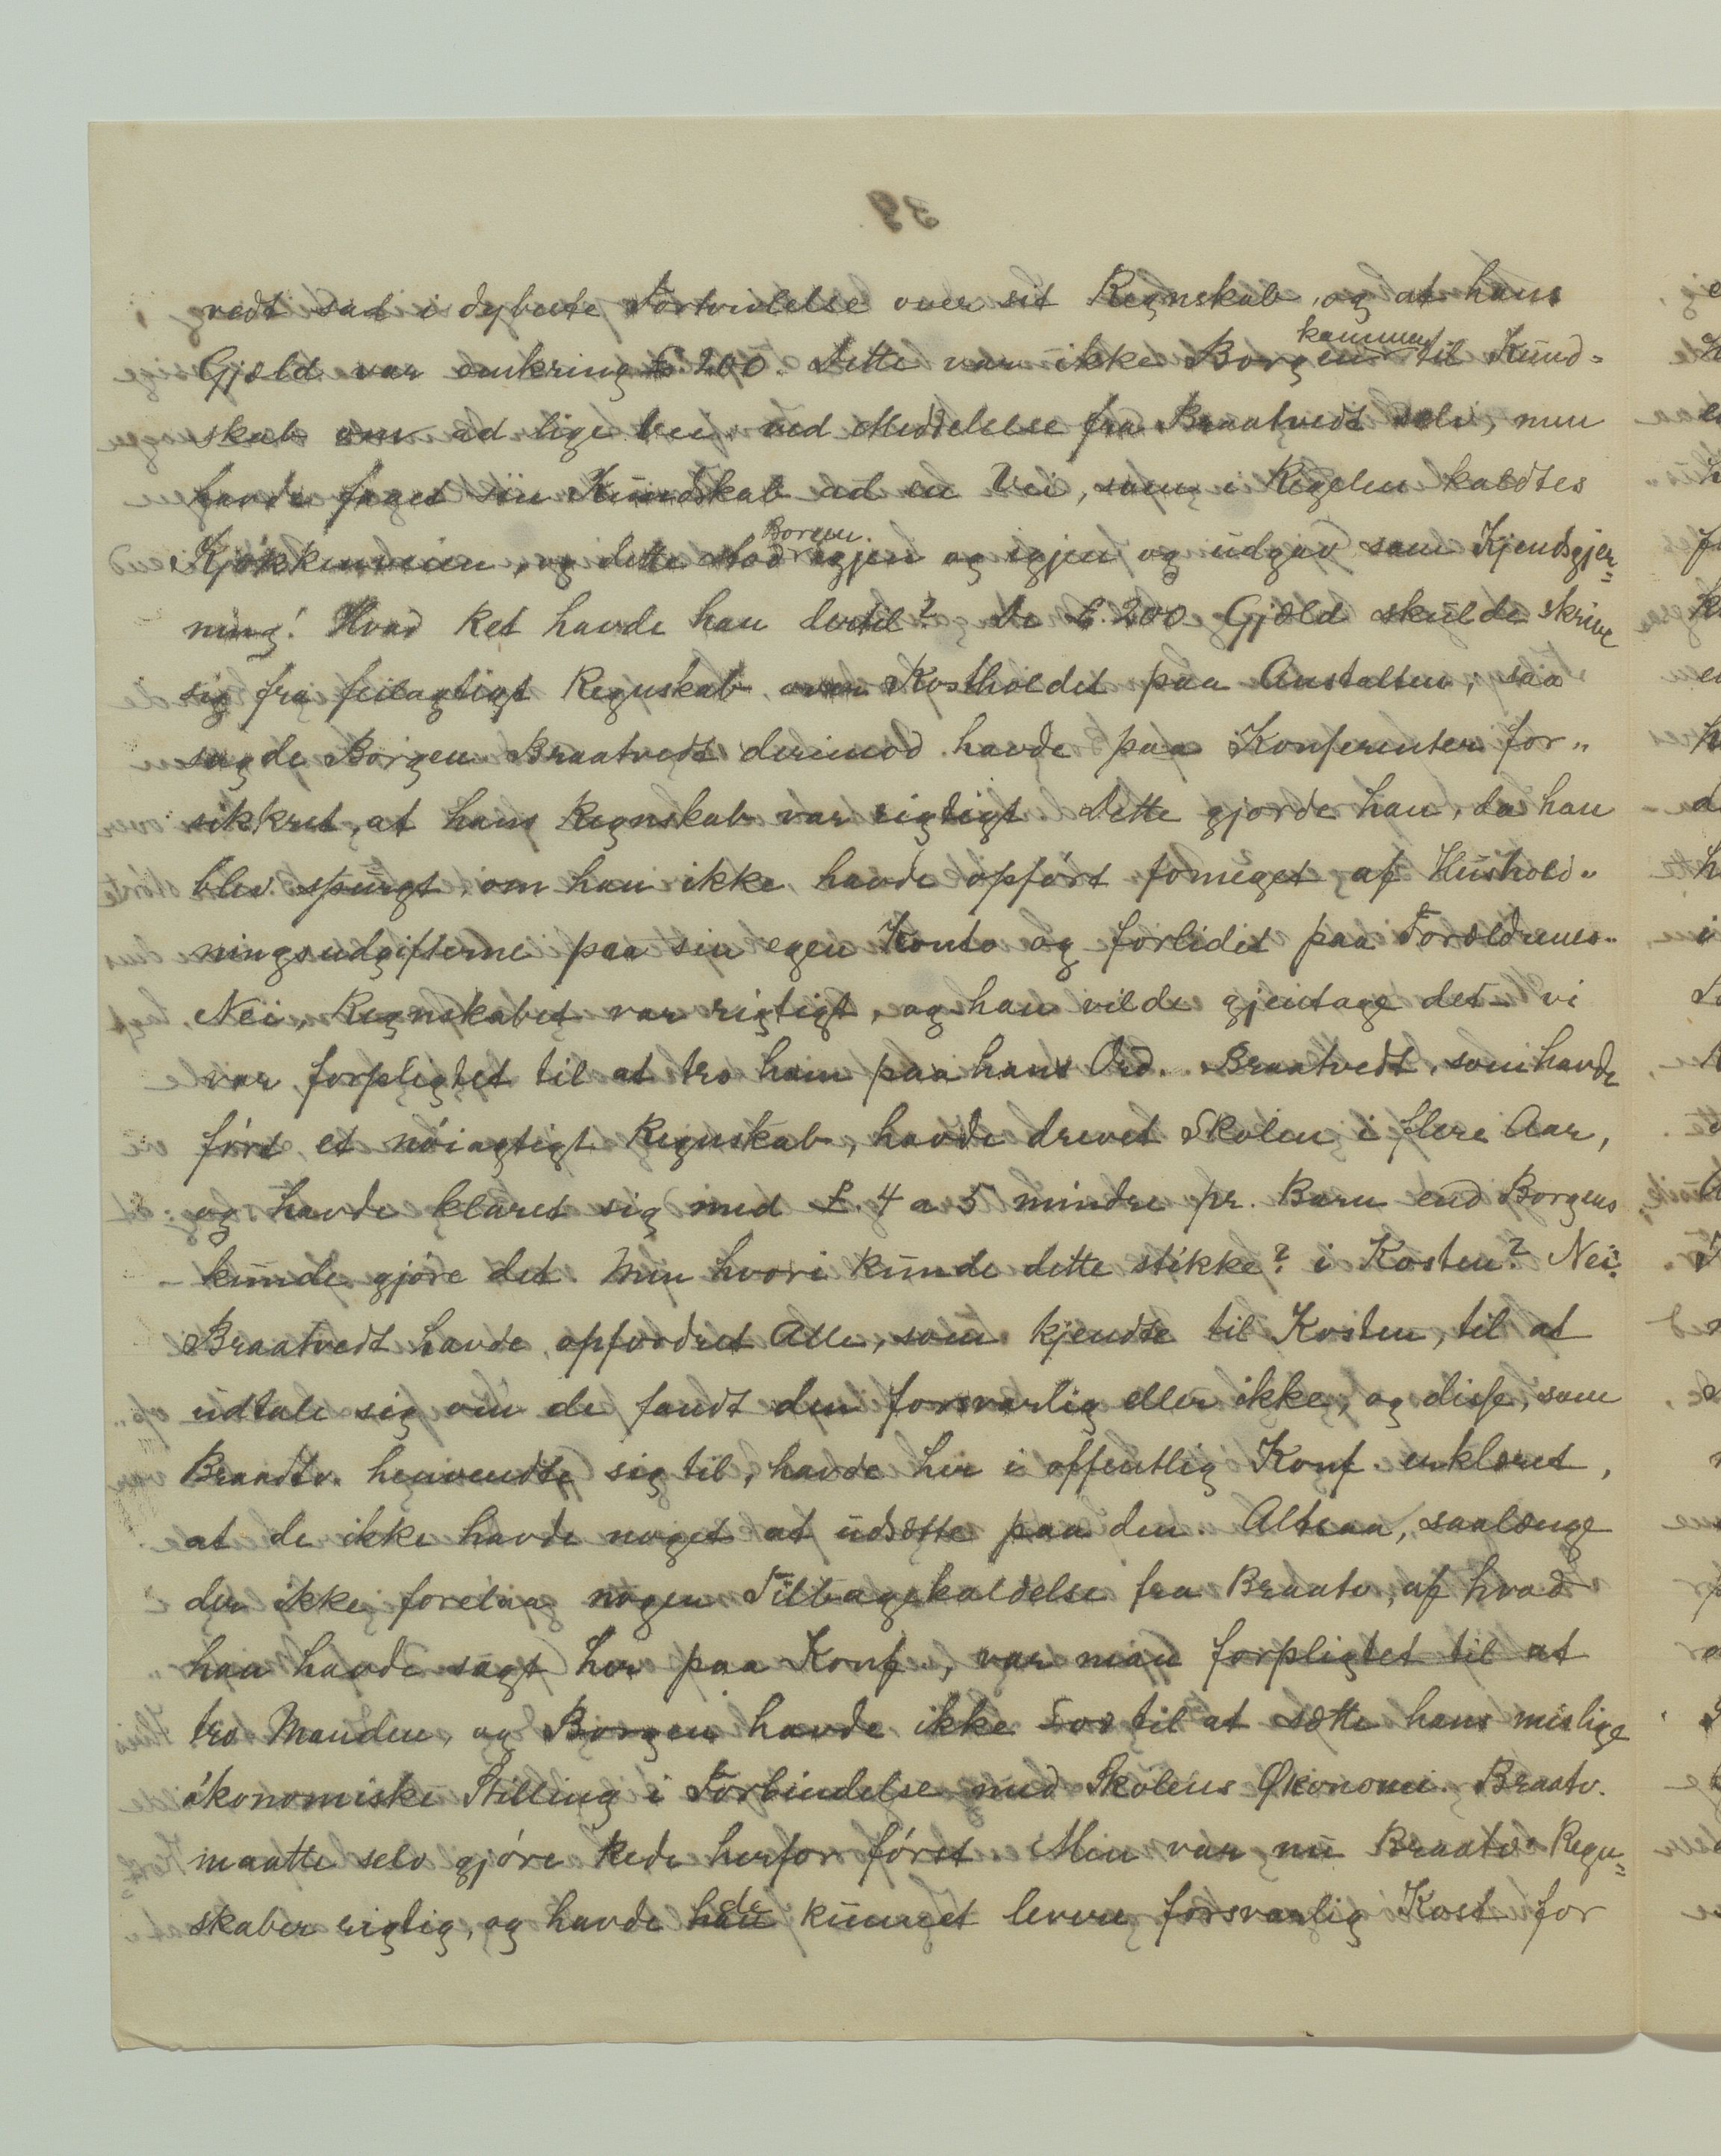 vedt sad i dybeste Fortvivlelse over sit Regnskab, og at hans
Gjæld var omkring £ 200. Dette var ikke Borgen kommen til Kund-
skab om ad lige Vei, ved Meddelelse fra Braatvedt selv, men
havde faaet sin Kundskab ad en Vei, som i Regelen kaldtes
Kjøkkenveien, og dette stod Borgen igjen og igjen og udgav som Kjendsgjer=
ning! Hvad Ret havde han dertil? De £. 200 Gjæld skulde skrive
sig fra feilagtigt Regnskab over Kostholdet paa Anstalten, saa
sagde Borgen. Braatvedt derimod havde paa Konferenten for„
sikkret, at hans Regnskab var rigtigt. Dette gjorde han, da han
blev spurgt, om han ikke havde opført formeget af Hushold„
ningsudgifterne paa sin egen Konto og forlidet paa Forældrenes.
Nei, Regnskabet var rigtigt, og han vilde gjentage det – vi
var forpligtet til at tro ham paa hans Ord. Braatvedt, som havde
ført et nøiagtigt Regnskab, havde drevet Skolen i flere Aar,
og havde klaret sig med £. 4 a 5 mindre pr. Barn end Borgens
kunde gjøre det. Men hvori kunde dette stikke? i Kosten? Nei.
Braatvedt havde opfordret Alle, som kjendte til Kosten, til at
udtale sig om de fandt den forsvarlig eller ikke, og disse, som
Braatv. henvendte sig til, havde her i offentlig Konf erklæret,
at de ikke havde noget at udsætte paa den. Altsaa, saalænge
der ikke forelaa nogen Tilbagekaldelse fra Braatv, af hvad
han havde sagt her paa Konf., var man forpligtet til at
tro Manden, og Borgen havde ikke Lov til at sætte hans mislige
økonomiske Stilling i Forbindelse med Skolens Økonomi. Braatv.
maatte selv gjøre Rede herfor først. Men var nu Braatvs Regn=
skaber rigtig, og havde han de kunnet levere forsvarlig Kost for